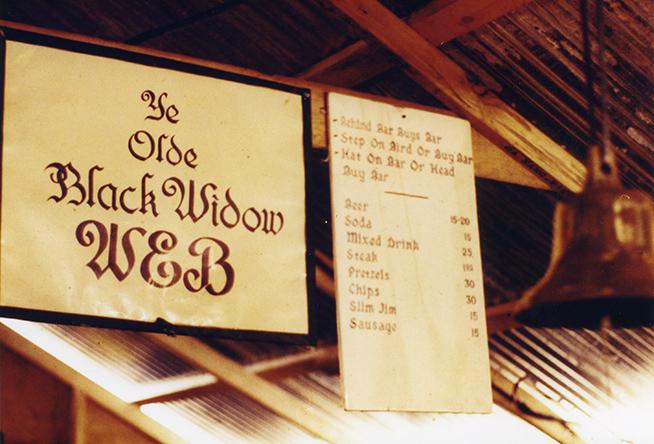 Ye
Olde
Black Widow
WEB
-Behind Bar Buys Bar
-Step On Bird Or Buy Bar
-Hat On Bar Or Head
Buy Bar
Beer 15-20
Soda 15
Mixed Drink 25
Steak
Pretzels 30
Chips 30
Slim Jim 15
Sausage 15